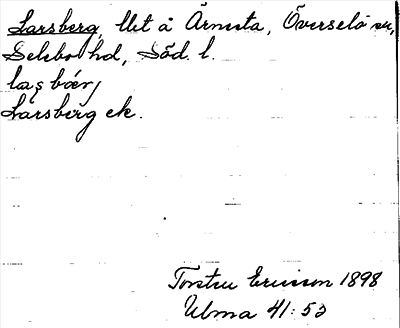 Larsberg, lht å Ärnsta, Överselö sn,
Selebo hd, Söd. l.
Larsberg ek.
Torsten Ericsson 1898
Ulma 41:53